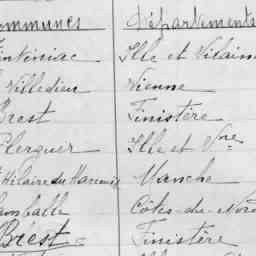 Communes Départements
Tinténiac Ille et Vilaine
Villedieu Vienne
Brest Finistère
Plerguer Ille et Vne
St Hilaire du Harcouët Manche
Lamballe Côtes-du-Nord
Brest Finistère